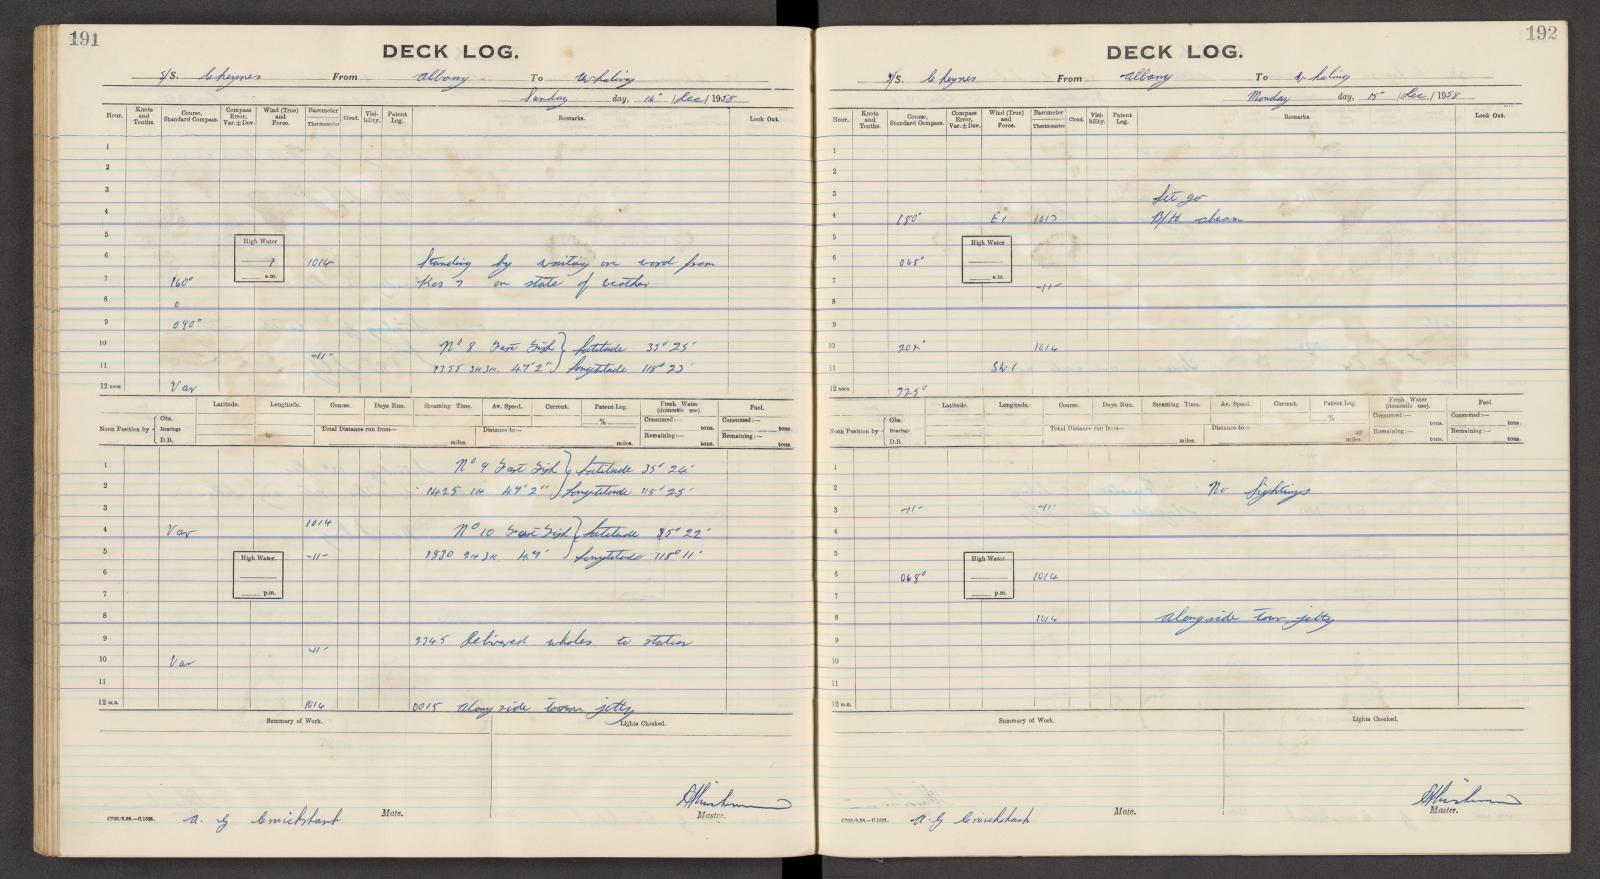 191
DECK LOG.
S/S. Cheynes From Albany To Whaling
Sunday day, 14" / Dec / 1958
Hour. Knots and Tenths. Course, Standard Compass. Compass Error, Var. ± Dev. Wind (True) and Force. Barometer Thermometer Cloud. Visibility. Patent Log. Remarks. Look Out.
1
2
3
4
5
High Water
6 1014 Standing by waiting on word from
a.m.
7 160° Kos 7 on state of weather
8
9 090°
10 -11- No 8 Fast Fish } Latitude 35° 25'
11 47' 2" } Longtitude 118° 23'
12 noon Var
Latitude. Longitude. Course. Days Run. Steaming Time. Av. Speed. Current. Patent Log. Fresh Water (domestic use). Fuel.
Noon Position by { Obs. Bearings D.R.
% Consumed:— tons. Consumed:— tons.
Total Distance run from— miles. Distance to— miles. Remaining:— tons. Remaining:— tons.
1 No 9 Fast Fish } Latitude 35° 24'
2 1425 1H 49' 2" } Longtitude 118° 25'
3
4 Var 1014 No 10 Fast Fish } Latitude 35° 22'
5 -11- 1830 49' } Longtitude 118° 11'
High Water.
6
7 p.m.
8
9 2345 Delivered whales to station
-11-
10 Var
11
12 m.n. 1014 0015 alongside town jetty
Summary of Work. Lights Checked.
A. G Cruickshank Mate. Master.
192
DECK LOG.
S/S. Cheynes From Albany To Whaling
Monday day, 15" / Dec / 1958
Hour. Knots and Tenths. Course, Standard Compass. Compass Error, Var. ± Dev. Wind (True) and Force. Barometer Thermometer Cloud. Visibility. Patent Log. Remarks. Look Out.
1
2
3 Let go
4 180° E1 1013 B/H abeam
5
High Water
6 068°
a.m.
7 -11-
8
9
10 1014
11 SW1
12 noon 225°
Latitude. Longitude. Course. Days Run. Steaming Time. Av. Speed. Current. Patent Log. Fresh Water (domestic use). Fuel.
Noon Position by { Obs. Bearings D.R.
% Consumed:— tons. Consumed:— tons.
Total Distance run from— miles. Distance to— miles. Remaining:— tons. Remaining:— tons.
1
2 No Sightings
3 -11- -11-
4
5
High Water
6 068° 1014
7 p.m.
8 1014 alongside town jetty
9
10
11
12 m.n.
Summary of Work. Lights Checked.
A. G Cruickshank Mate. Master.